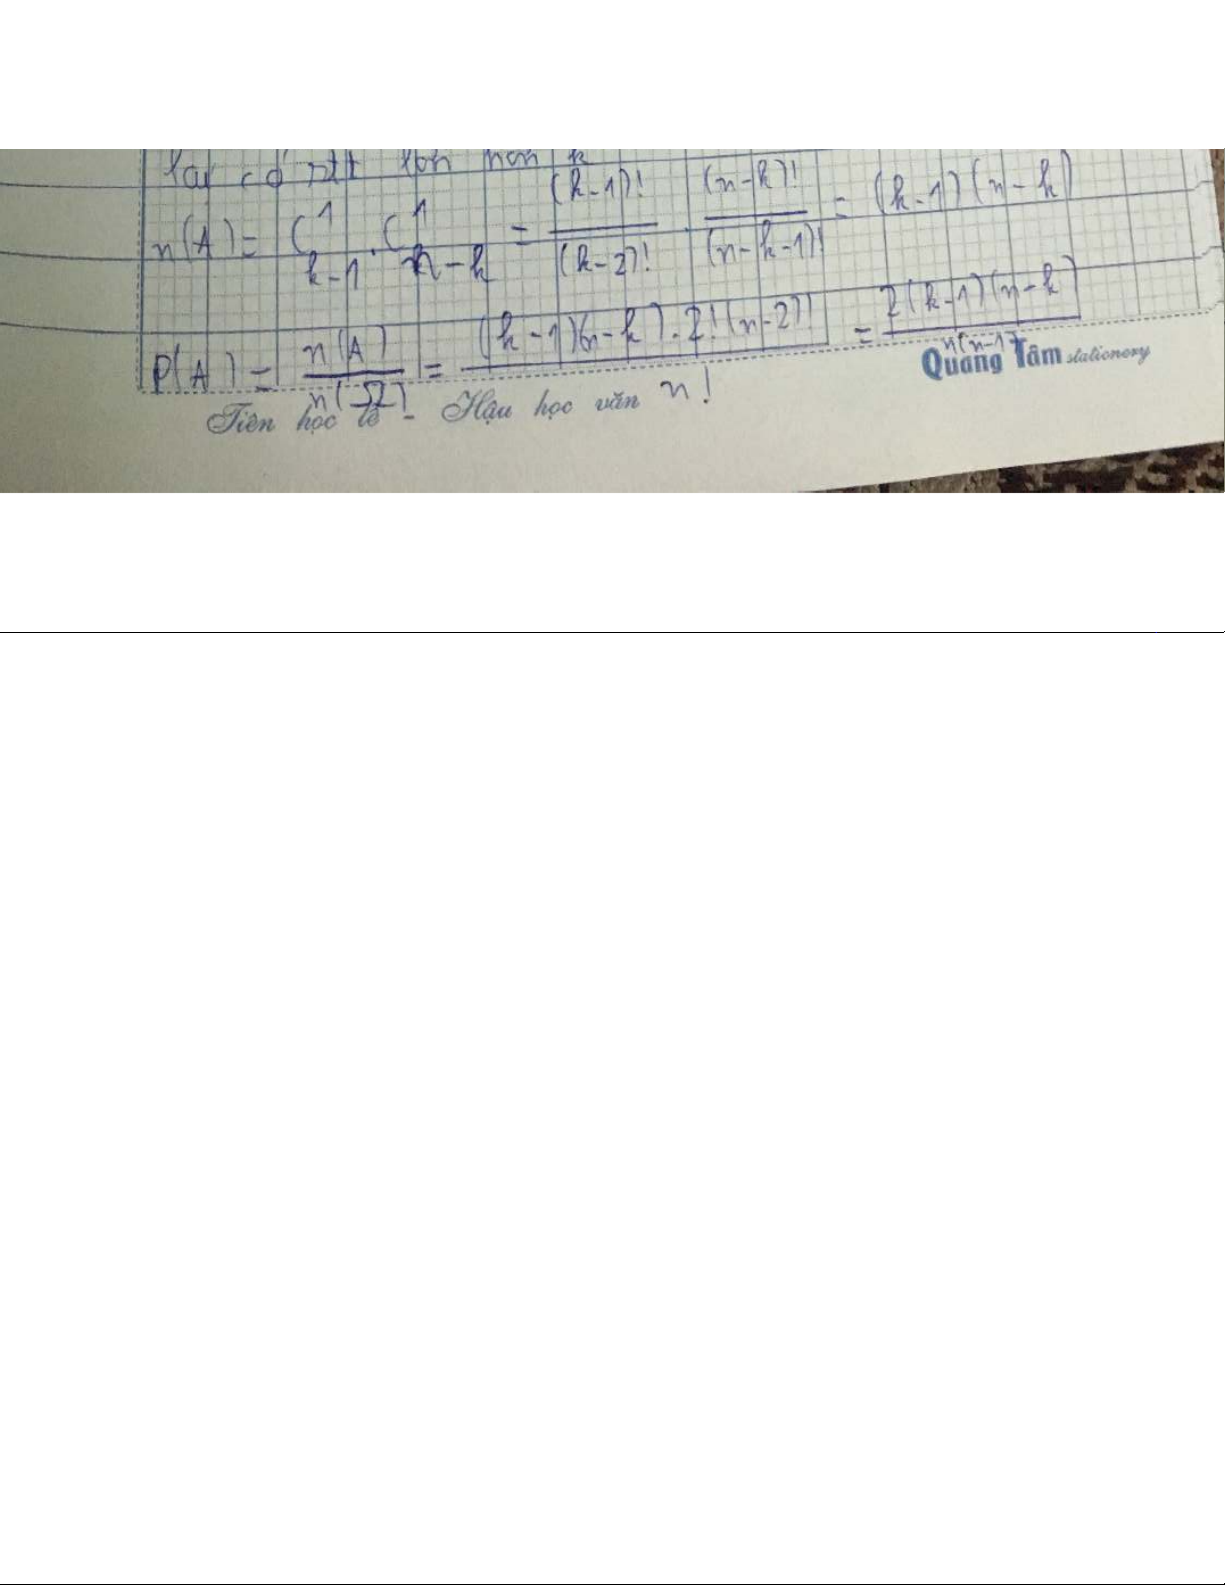 lấy có stt lớn hơn k
n(A) = C¹ₖ₋₁ . C¹ₙ₋ₖ = (k-1)!/(k-2)! . (n-k)!/(n-k-1)! = (k-1)(n-k)
P(A) = n(A)/n(Ω) = (k-1)(n-k).2!(n-2)!/n! = 2(k-1)(n-k)/n(n-1)
Quang Tâm stationery
Tiên học lễ - Hậu học văn